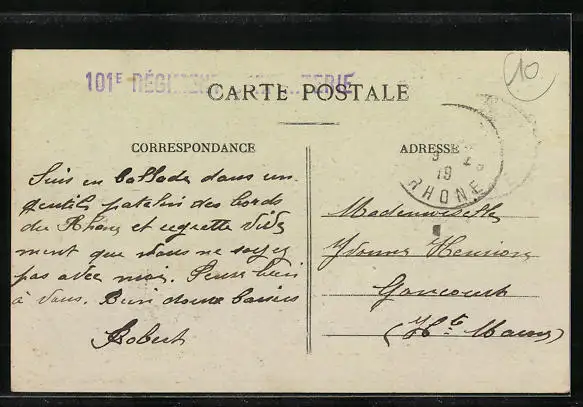 101E RÉGIMENT D'INFANTERIE
10
CARTE POSTALE
CORRESPONDANCE
ADRESSE
19
RHONE
Suis en ballade dans un
gentil patelin des bords
du Rhône et regrette vive
ment que vous ne soyez
pas avec moi. Pense bien
à vous. Bien doux baisers
Robert
Mademoiselle
Yvonne Henrion
Goncourt
(Hte Marne)